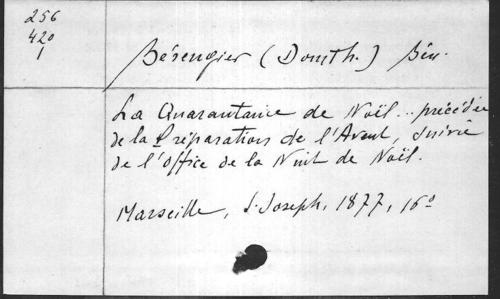 256
420
1
Bérengier (Dom th.) Bén.
La Quarantaine de Noël... précédée
de la Préparation de l'Avent, suivie
de l'Office de la Nuit de Noël.
Marseille, S. Joseph, 1877, 16°